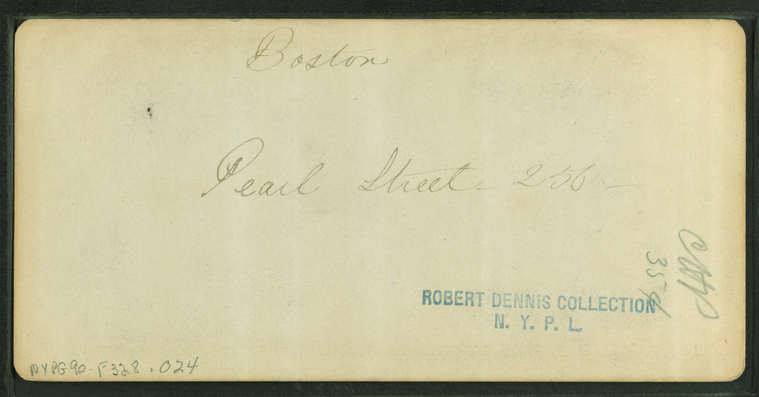 Boston
Pearl Street - 256 -
ROBERT DENNIS COLLECTION
N. Y. P. L.
NYPG90-F328.024